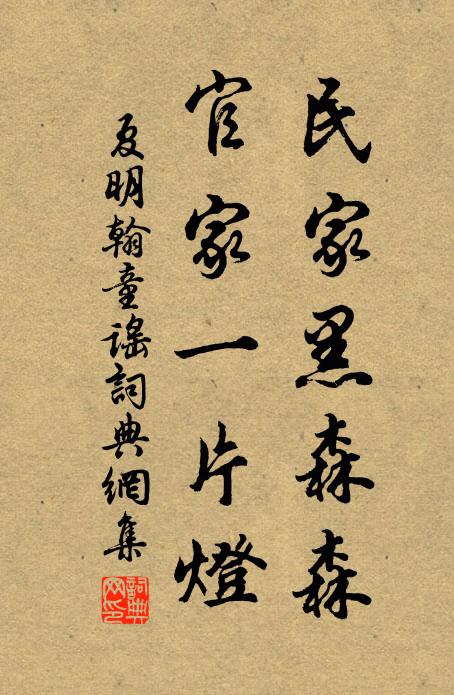 民家黑森森
官家一片燈
夏明翰童謠詞典網集
詞典網印